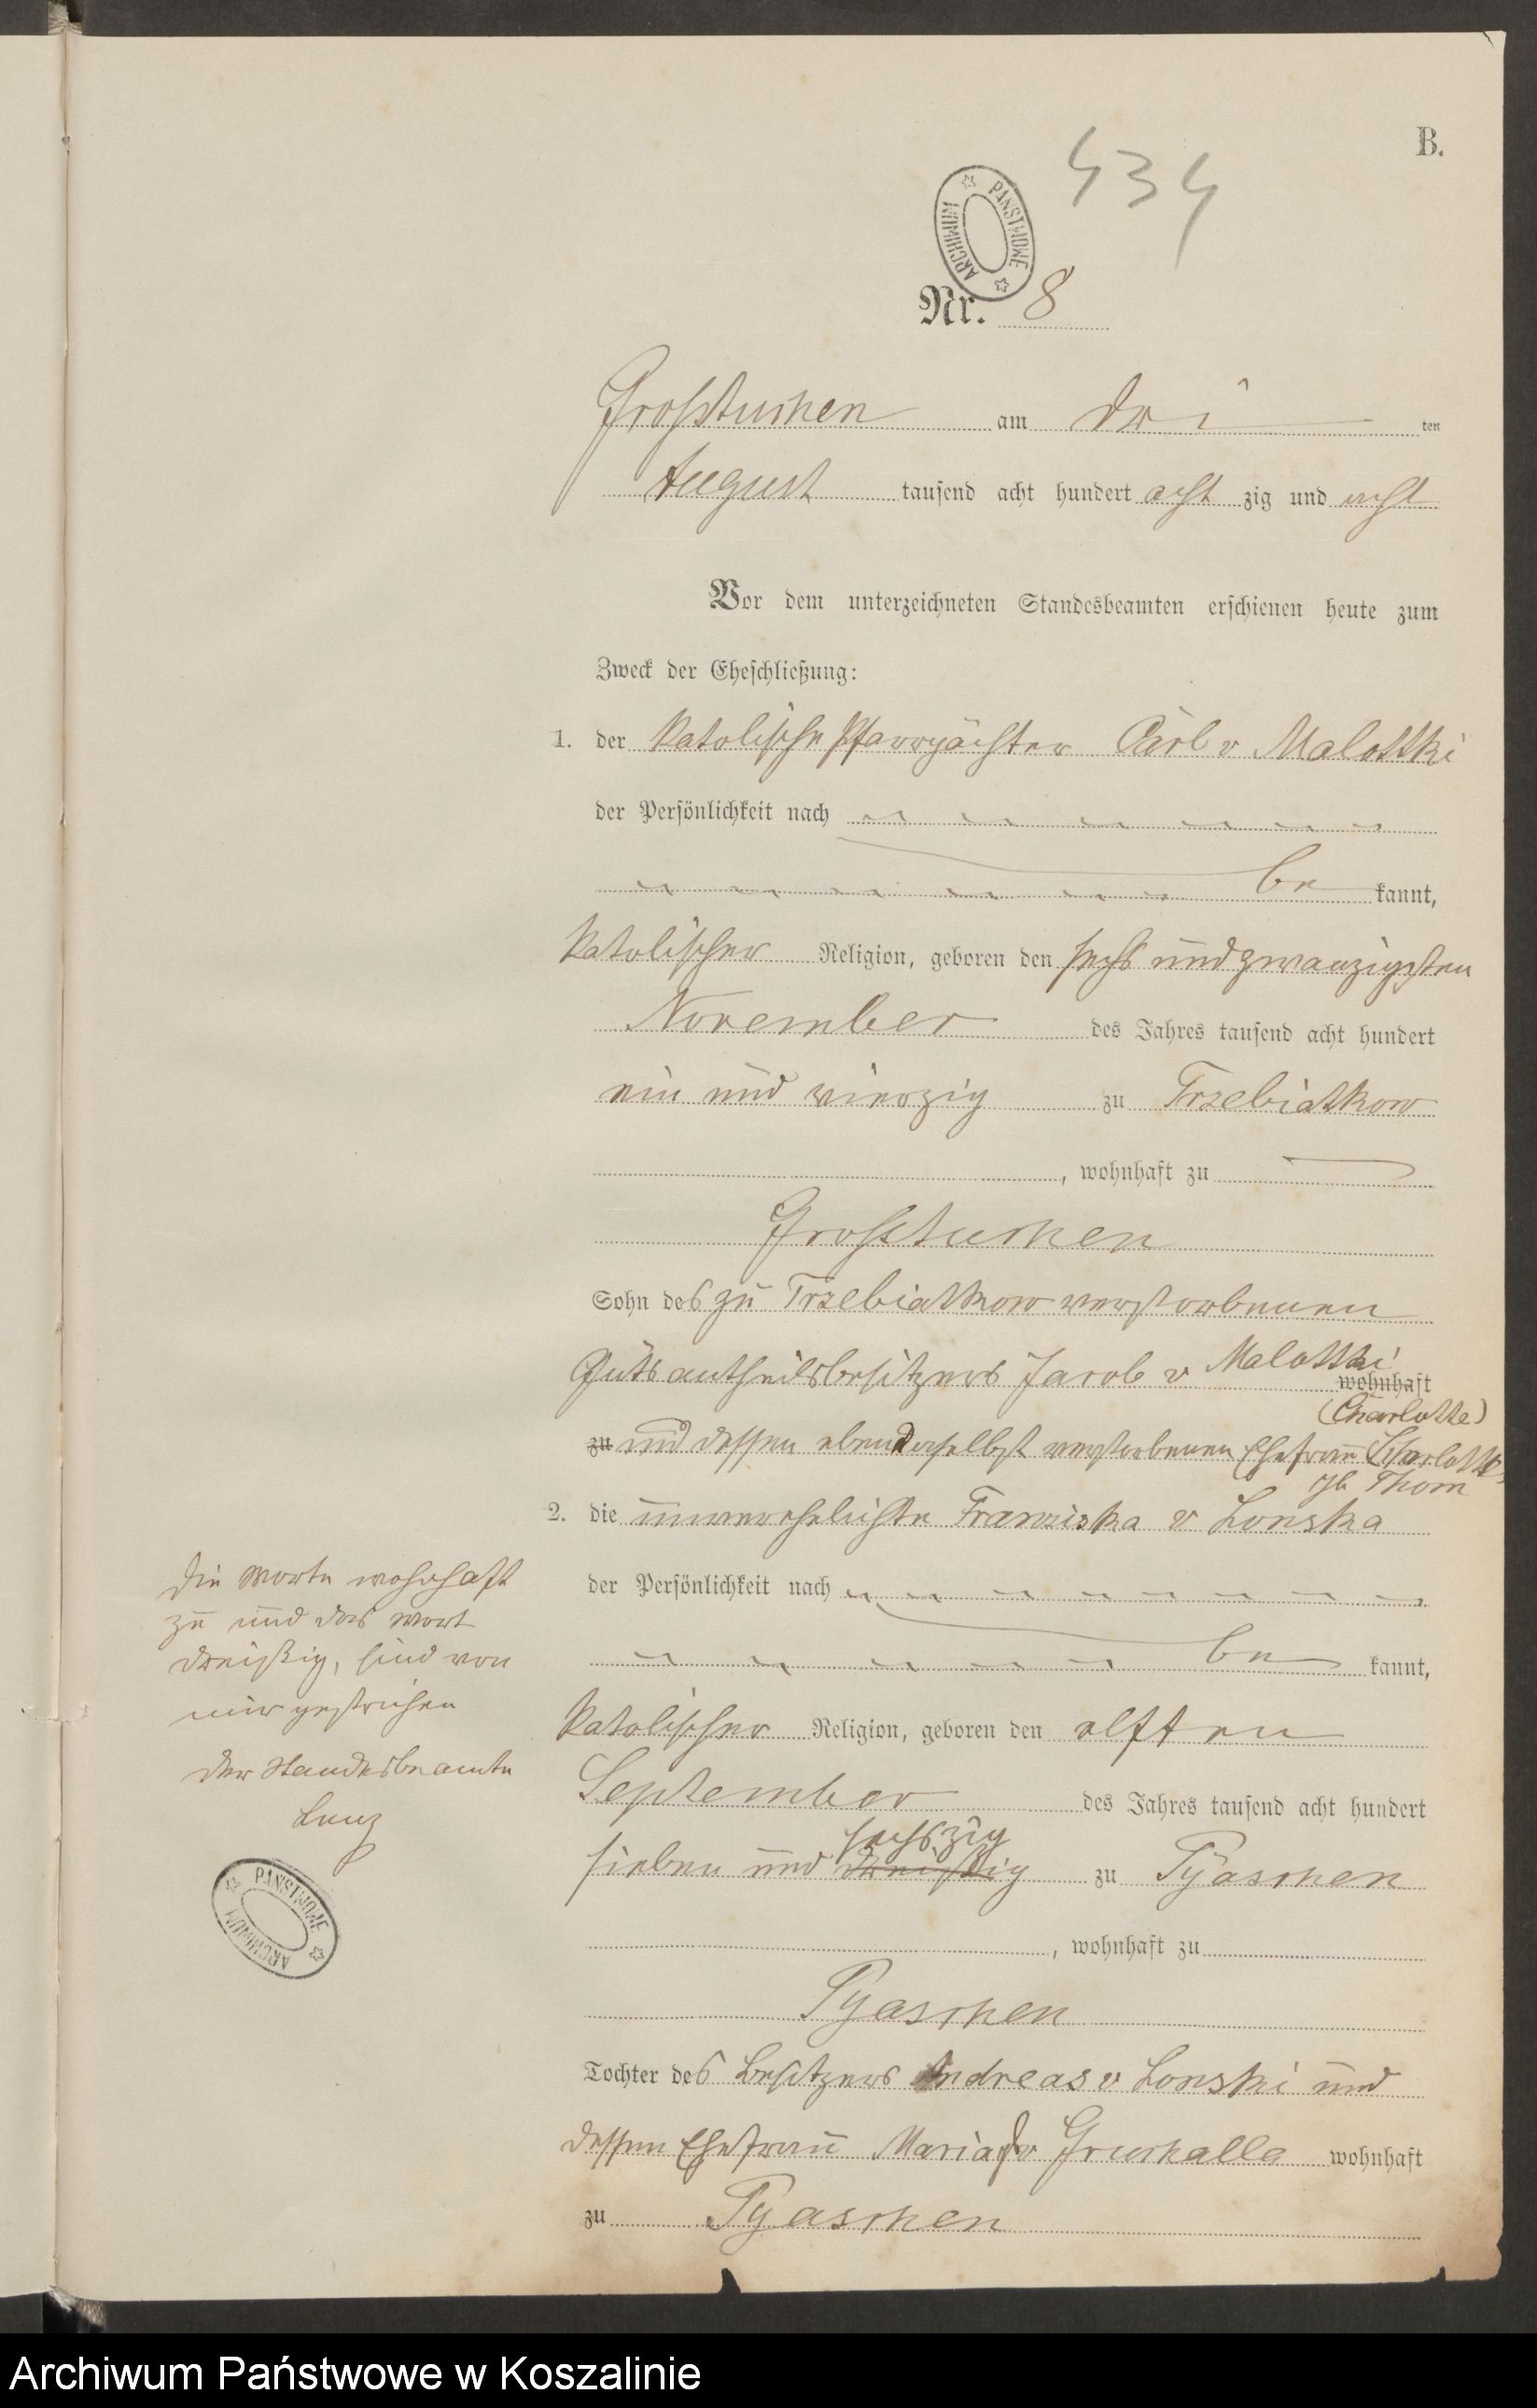 B.
434
PAŃSTWOWE ARCHIWUM
Nr. 8
Großtuchen am drei ten
August tausend acht hundert acht zig und acht
Vor dem unterzeichneten Standesbeamten erschienen heute zum
Zweck der Eheschließung:
1. der Katolische Pfarrpächter Carl v Malottki
der Persönlichkeit nach
be kannt,
katolischer Religion, geboren den sechs und zwanzigsten
November des Jahres tausend acht hundert
ein und vierzig zu Trzebiatkow
, wohnhaft zu
Großtuchen
Sohn des zu Trzebiatkow verstorbenen
Gutsantheilsbesitzers Jacob v Malottki wohnhaft
(Charlotte)
zu und dessen ebendaselbst verstorbenen Ehefrau Charlotte
gb Thom
2. die unverehelichte Franziska v Lonska
der Persönlichkeit nach
be kannt,
katolischer Religion, geboren den elften
September des Jahres tausend acht hundert
sechszig
sieben und dreißig zu Pyaschen
, wohnhaft zu
Pyaschen
Tochter des Besitzers Andreas v Lonski und
dessen Ehefrau Maria v Gruchalla wohnhaft
zu Pyaschen
Die Worte wohnhaft
zu und das Wort
dreißig, sind von
mir gestrichen
Der Standesbeamte
Lenz
PAŃSTWOWE ARCHIWUM
Archiwum Państwowe w Koszalinie